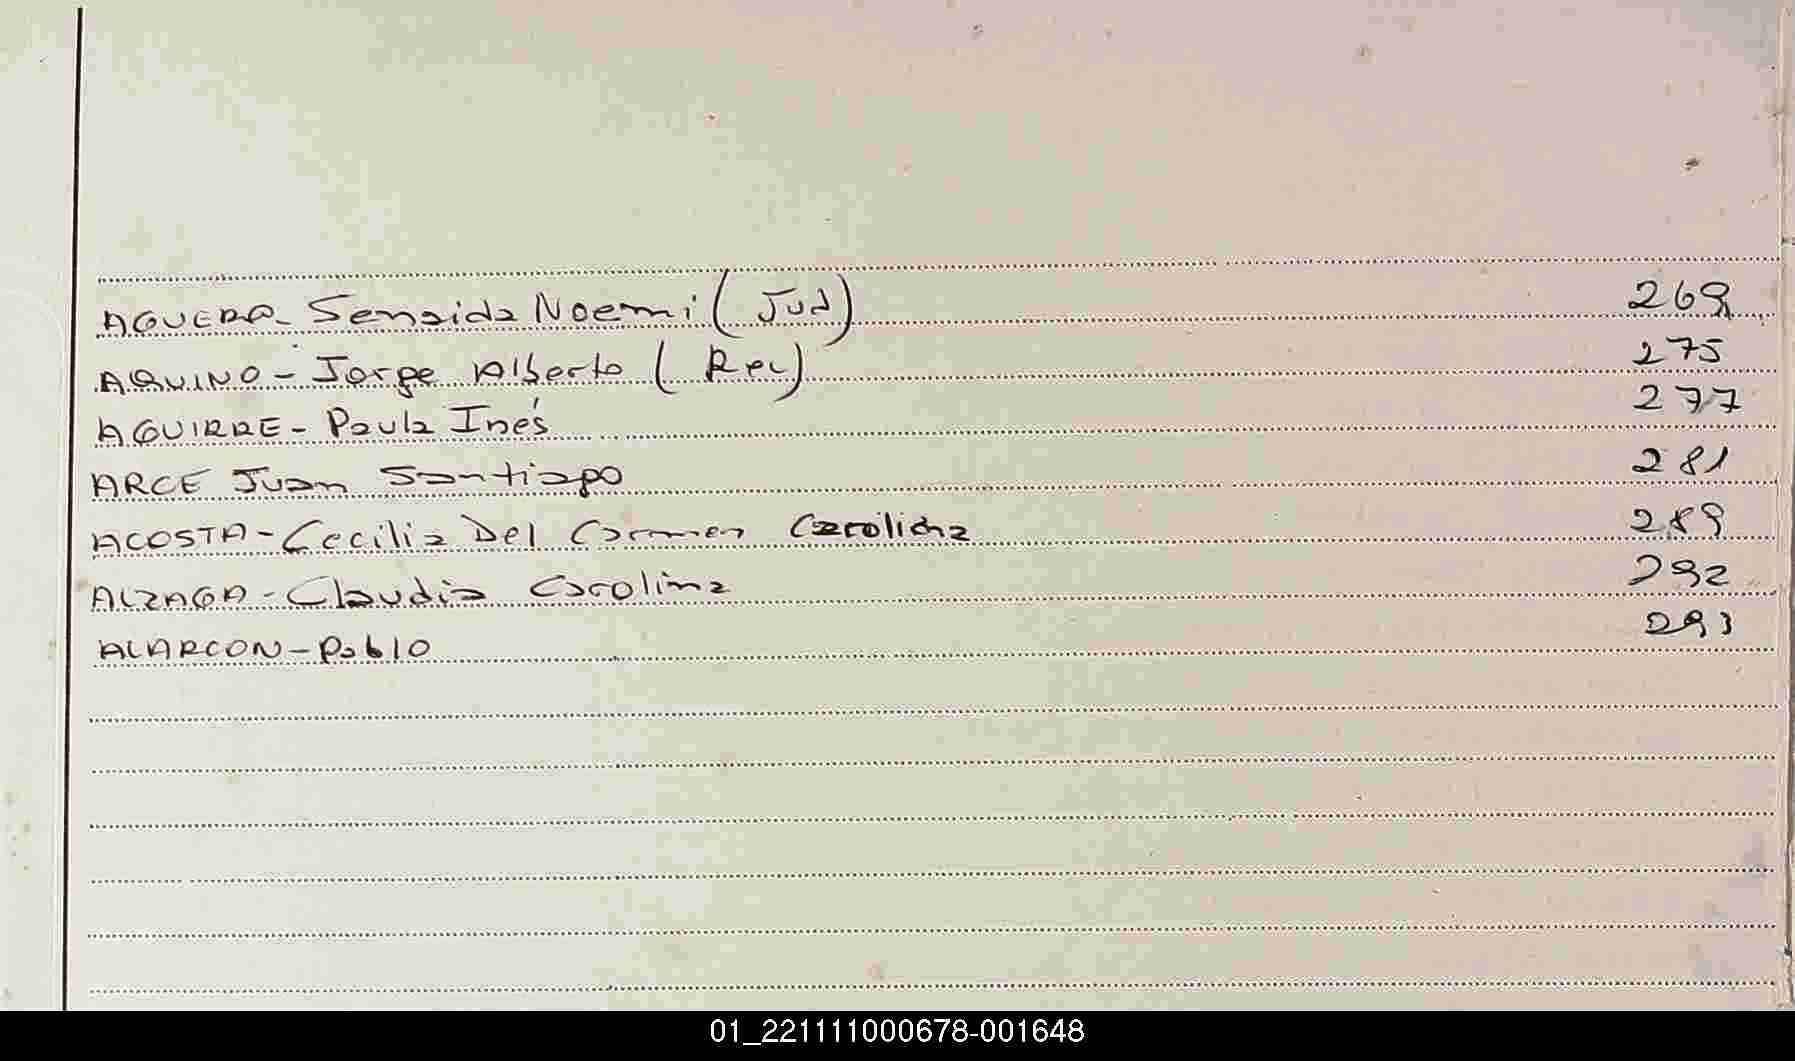 AGUERA - Senaida Noemi (Jud) 269
AQUINO - Jorge Alberto (Rec) 275
AGUIRRE - Paula Inés 277
ARCE Juan Santiago 281
ACOSTA - Cecilia Del Carmen 289
ALZAGA - Claudia Carolina 292
ALARCON - Pablo 293
01_221111000678-001648